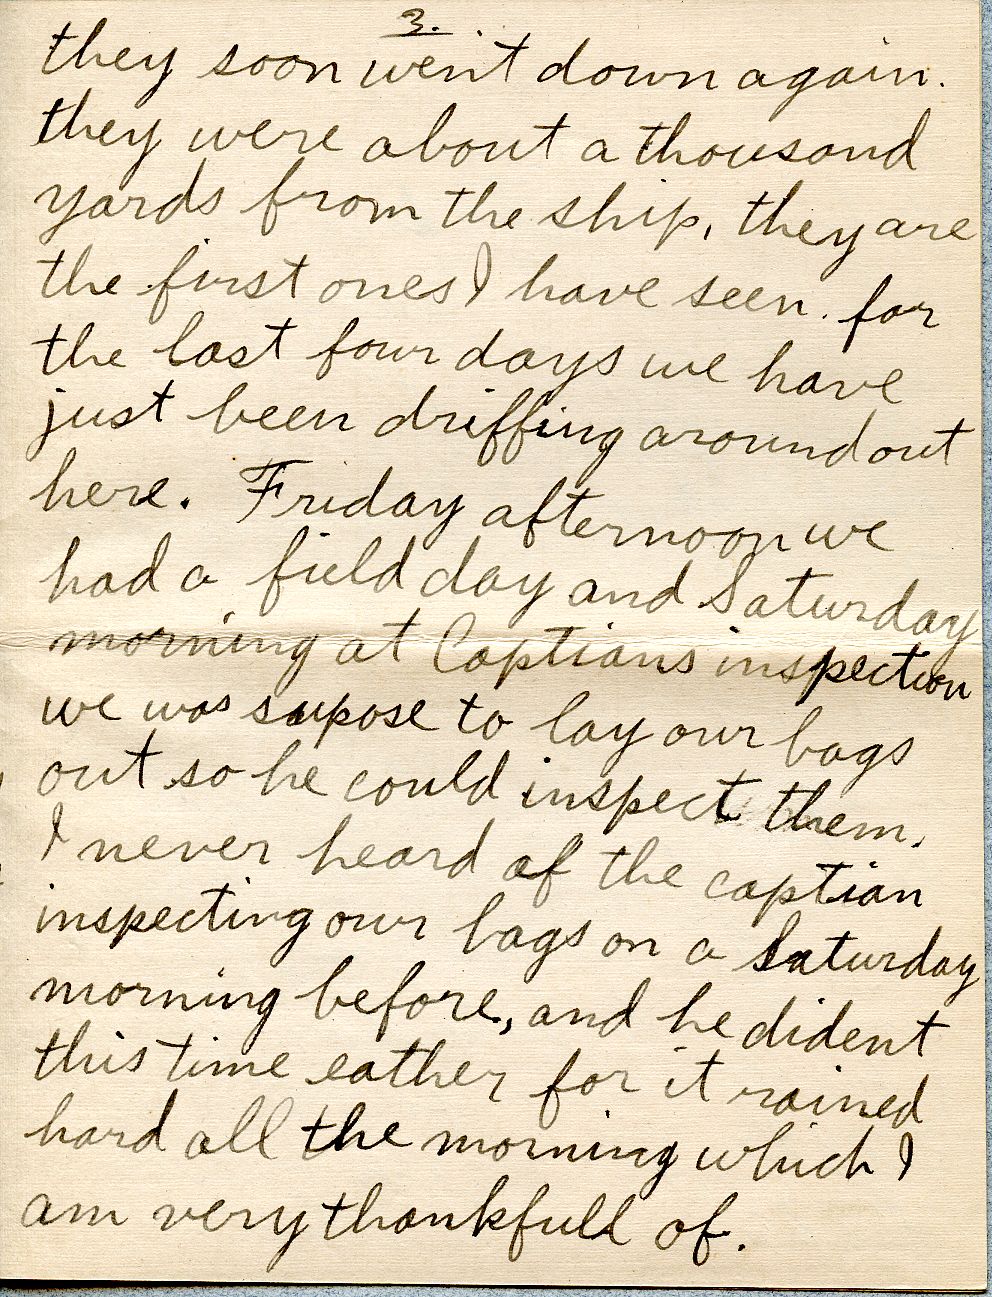 3.
they soon went down again.
they were about a thousand
yards from the ship, they are
the first ones I have seen. for
the last four days we have
just been driffing around out
here. Friday afternoon we
had a field day and Saturday
morning at Captians inspection
we was supose to lay our bags
out so he could inspect them.
I never heard of the captian
inspecting our bags on a Saturday
morning before, and he dident
this time eather for it rained
hard all the morning which I
am very thankfull of.